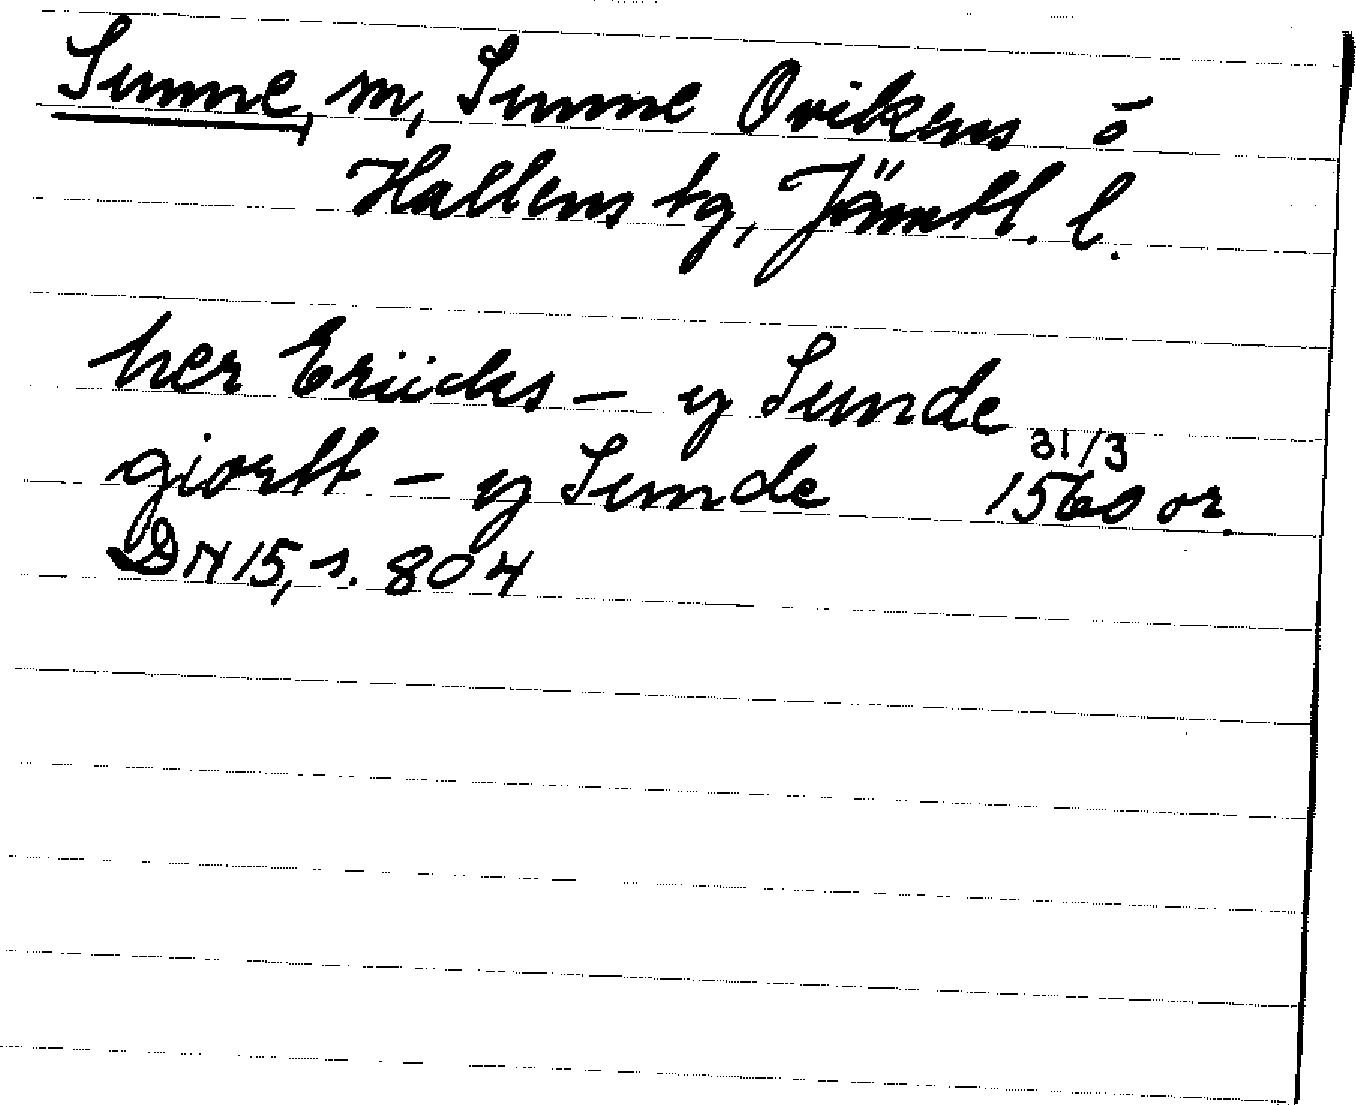 Sunne, m, Sunne Ovikens o
Hallens tg, Jämtl. l.
her Eriicks – y Sunde
giortt – y Sunde 31/3 1560 or.
DN 15, s. 804